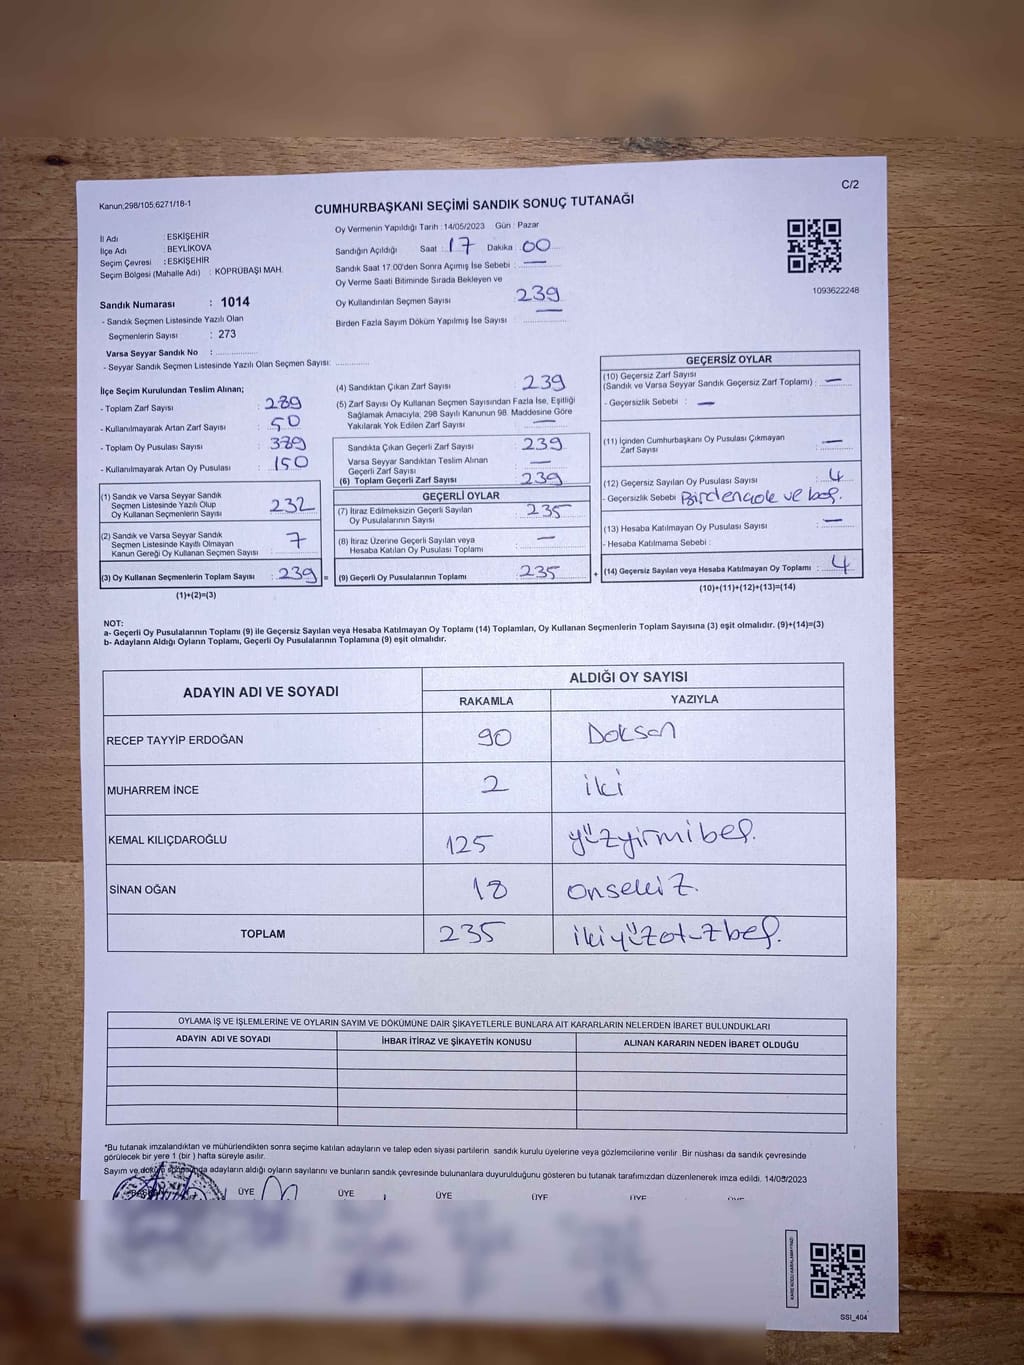 C/2
Kanun;298/105,6271/18-1
CUMHURBAŞKANI SEÇİMİ SANDIK SONUÇ TUTANAĞI
İl Adı : ESKİŞEHİR
İlçe Adı : BEYLİKOVA
Seçim Çevresi : ESKİŞEHİR
Seçim Bölgesi (Mahalle Adı) : KÖPRÜBAŞI MAH.
Sandık Numarası : 1014
- Sandık Seçmen Listesinde Yazılı Olan
Seçmenlerin Sayısı : 273
Varsa Seyyar Sandık No :
- Seyyar Sandık Seçmen Listesinde Yazılı Olan Seçmen Sayısı:
Oy Vermenin Yapıldığı Tarih : 14/05/2023 Gün : Pazar
Sandığın Açıldığı Saat : 17 Dakika : 00
Sandık Saat 17.00'den Sonra Açımış İse Sebebi : —
Oy Verme Saati Bitiminde Sırada Bekleyen ve
Oy Kullandırılan Seçmen Sayısı : 239
Birden Fazla Sayım Döküm Yapılmış İse Sayısı : —
1093622248
İlçe Seçim Kurulundan Teslim Alınan;
- Toplam Zarf Sayısı : 289
- Kullanılmayarak Artan Zarf Sayısı : 50
- Toplam Oy Pusulası Sayısı : 389
- Kullanılmayarak Artan Oy Pusulası : 150
(1) Sandık ve Varsa Seyyar Sandık
Seçmen Listesinde Yazılı Olup
Oy Kullanan Seçmenlerin Sayısı : 232
(2) Sandık ve Varsa Seyyar Sandık
Seçmen Listesinde Kayıtlı Olmayan
Kanun Gereği Oy Kullanan Seçmen Sayısı : 7
(3) Oy Kullanan Seçmenlerin Toplam Sayısı : 239 =
(1)+(2)=(3)
(4) Sandıktan Çıkan Zarf Sayısı : 239
(5) Zarf Sayısı Oy Kullanan Seçmen Sayısından Fazla İse, Eşitliği
Sağlamak Amacıyla, 298 Sayılı Kanunun 98. Maddesine Göre
Yakılarak Yok Edilen Zarf Sayısı : —
Sandıkta Çıkan Geçerli Zarf Sayısı : 239
Varsa Seyyar Sandıktan Teslim Alınan
Geçerli Zarf Sayısı : —
(6) Toplam Geçerli Zarf Sayısı : 239
GEÇERLİ OYLAR
(7) İtiraz Edilmeksizin Geçerli Sayılan
Oy Pusulalarının Sayısı : 235
(8) İtiraz Üzerine Geçerli Sayılan veya
Hesaba Katılan Oy Pusulası Toplamı : —
(9) Geçerli Oy Pusulalarının Toplamı : 235 +
GEÇERSİZ OYLAR
(10) Geçersiz Zarf Sayısı
(Sandık ve Varsa Seyyar Sandık Geçersiz Zarf Toplamı) : —
- Geçersizlik Sebebi : —
(11) İçinden Cumhurbaşkanı Oy Pusulası Çıkmayan
Zarf Sayısı : —
(12) Geçersiz Sayılan Oy Pusulası Sayısı : 4
- Geçersizlik Sebebi : ve boş.
(13) Hesaba Katılmayan Oy Pusulası Sayısı : —
- Hesaba Katılmama Sebebi :
(14) Geçersiz Sayılan veya Hesaba Katılmayan Oy Toplamı : 4
(10)+(11)+(12)+(13)=(14)
NOT:
a- Geçerli Oy Pusulalarının Toplamı (9) ile Geçersiz Sayılan veya Hesaba Katılmayan Oy Toplamı (14) Toplamları, Oy Kullanan Seçmenlerin Toplam Sayısına (3) eşit olmalıdır. (9)+(14)=(3)
b- Adayların Aldığı Oyların Toplamı, Geçerli Oy Pusulalarının Toplamına (9) eşit olmalıdır.
ADAYIN ADI VE SOYADI
ALDIĞI OY SAYISI
RAKAMLA YAZIYLA
RECEP TAYYİP ERDOĞAN 90 Doksan
MUHARREM İNCE 2 iki
KEMAL KILIÇDAROĞLU 125 yüzyirmibeş.
SİNAN OĞAN 18 onsekiz.
TOPLAM 235 ikiyüzotuzbeş.
OYLAMA İŞ VE İŞLEMLERİNE VE OYLARIN SAYIM VE DÖKÜMÜNE DAİR ŞİKAYETLERLE BUNLARA AİT KARARLARIN NELERDEN İBARET BULUNDUKLARI
ADAYIN ADI VE SOYADI İHBAR İTİRAZ VE ŞİKAYETİN KONUSU ALINAN KARARIN NEDEN İBARET OLDUĞU
*Bu tutanak imzalandıktan ve mühürlendikten sonra seçime katılan adayların ve talep eden siyasi partilerin sandık kurulu üyelerine veya gözlemcilerine verilir. Bir nüshası da sandık çevresinde
görülecek bir yere 1 (bir) hafta süreyle asılır.
Sayım ve döküm sonucunda adayların aldığı oyların sayılarını ve bunların sandık çevresinde bulunanlara duyurulduğunu gösteren bu tutanak tarafımızdan düzenlenerek imza edildi. 14/05/2023
BAŞKAN ÜYE ÜYE ÜYE ÜYE ÜYE
SSI_404